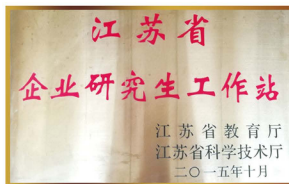 江苏省
企业研究生工作站
江苏省教育厅
江苏省科学技术厅
二〇一五年十月